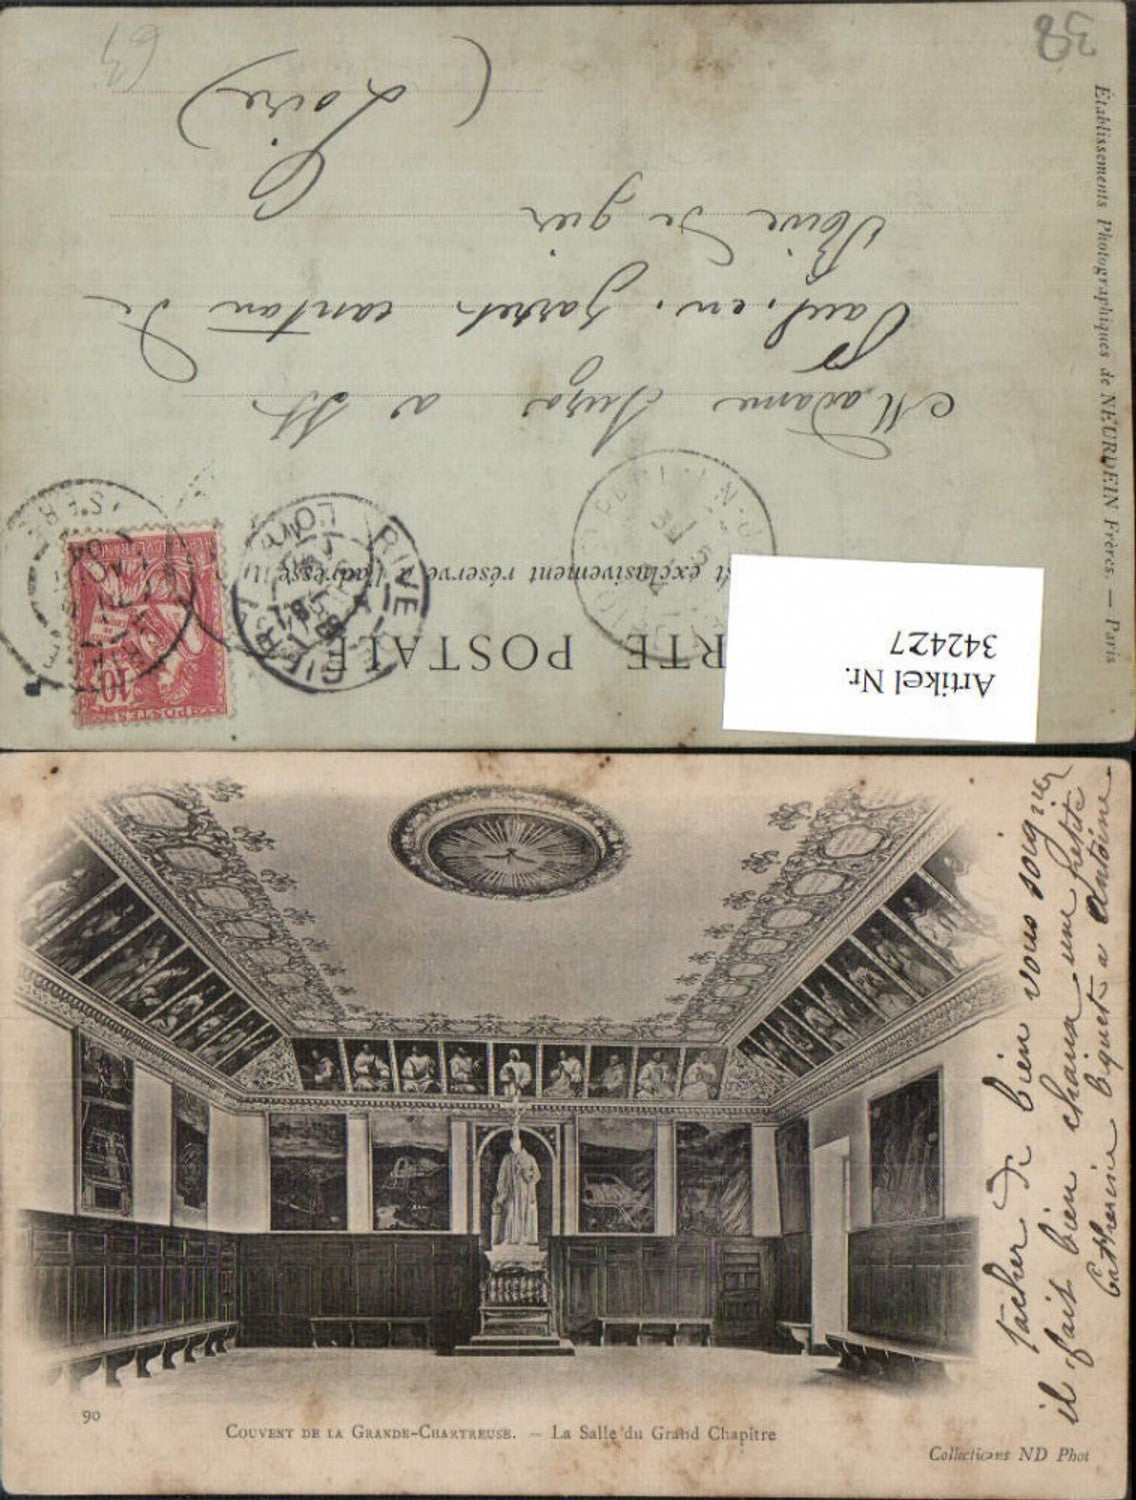 38
(63
Établissements Photographiques de NEURDEIN Frères. — Paris
RTE POSTALE
st exclusivement réservé à l'adresse
Artikel Nr.
342427
POSTES
10
RIVE DE GIER
LOIRE
Madame
a St
Paul. en. Jarret canton de
Rive de gier
(Loire)
tacher de bien vous soigner
il fait bien chaud une petite
Catherine
a antoine
90
COUVENT DE LA GRANDE-CHARTREUSE. — La Salle du Grand Chapitre
Collections ND Phot